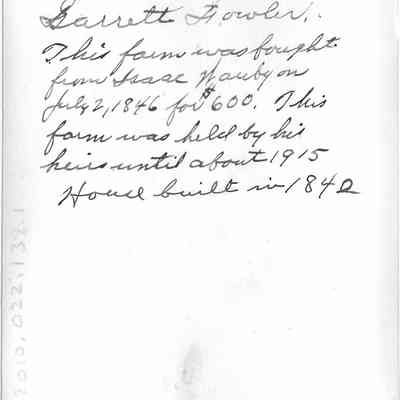 Garrett Fowler.
This farm was bought
from Isaac Mauby on
July 2, 1846 for $600. This
farm was held by his
heirs until about 1915
House built in 1842
2010.022.139.1